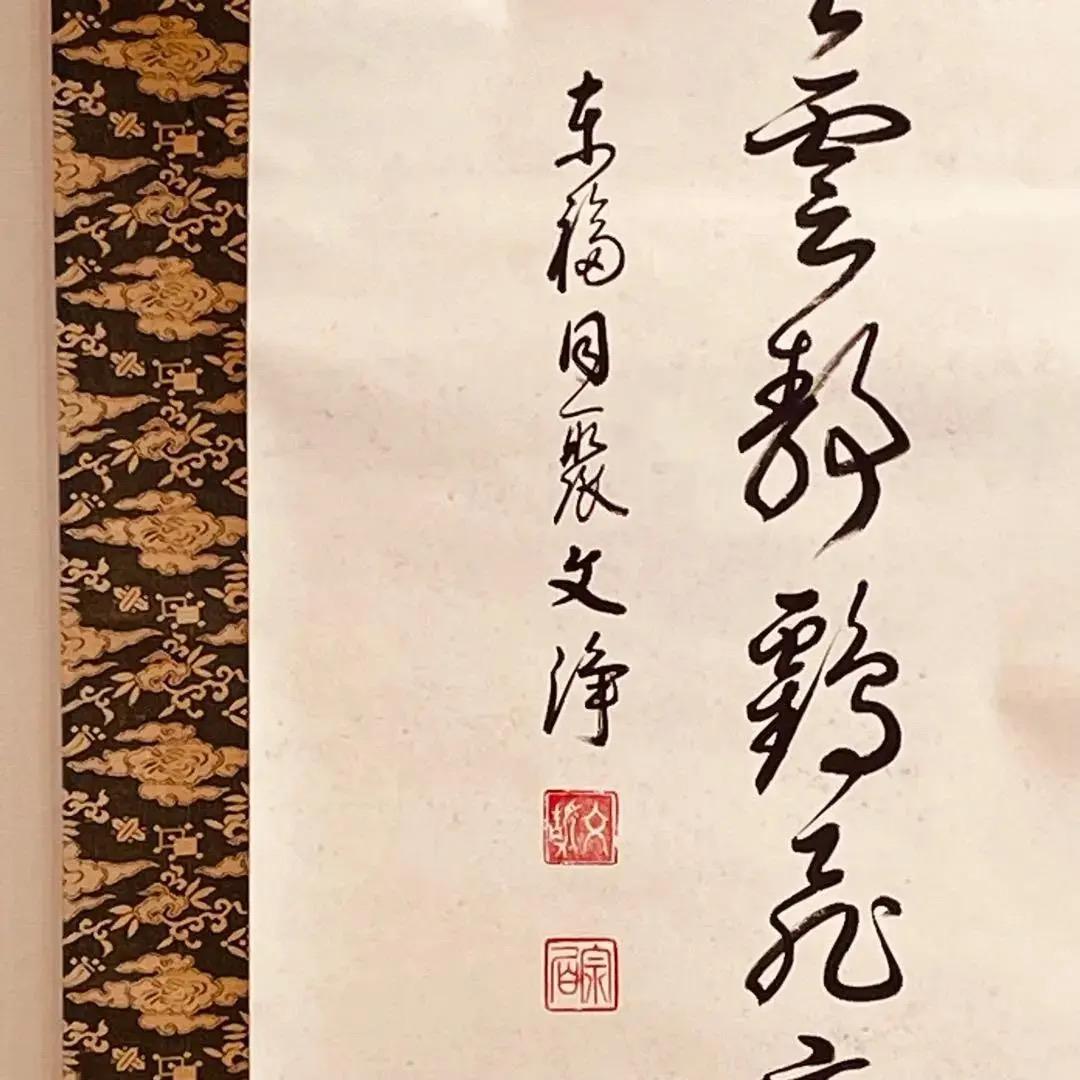 雲静鶴飛
東福同聚文浄